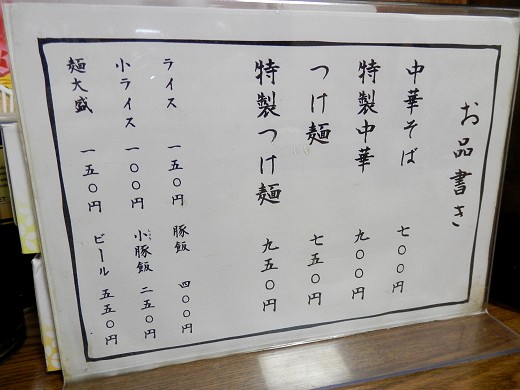 お品書き
中華そば 七〇〇円
特製中華 九〇〇円
つけ麺 七五〇円
特製つけ麺 九五〇円
ライス 一五〇円 豚飯 四〇〇円
小ライス 一〇〇円 小豚飯 二五〇円
麺大盛 一五〇円 ビール 五五〇円